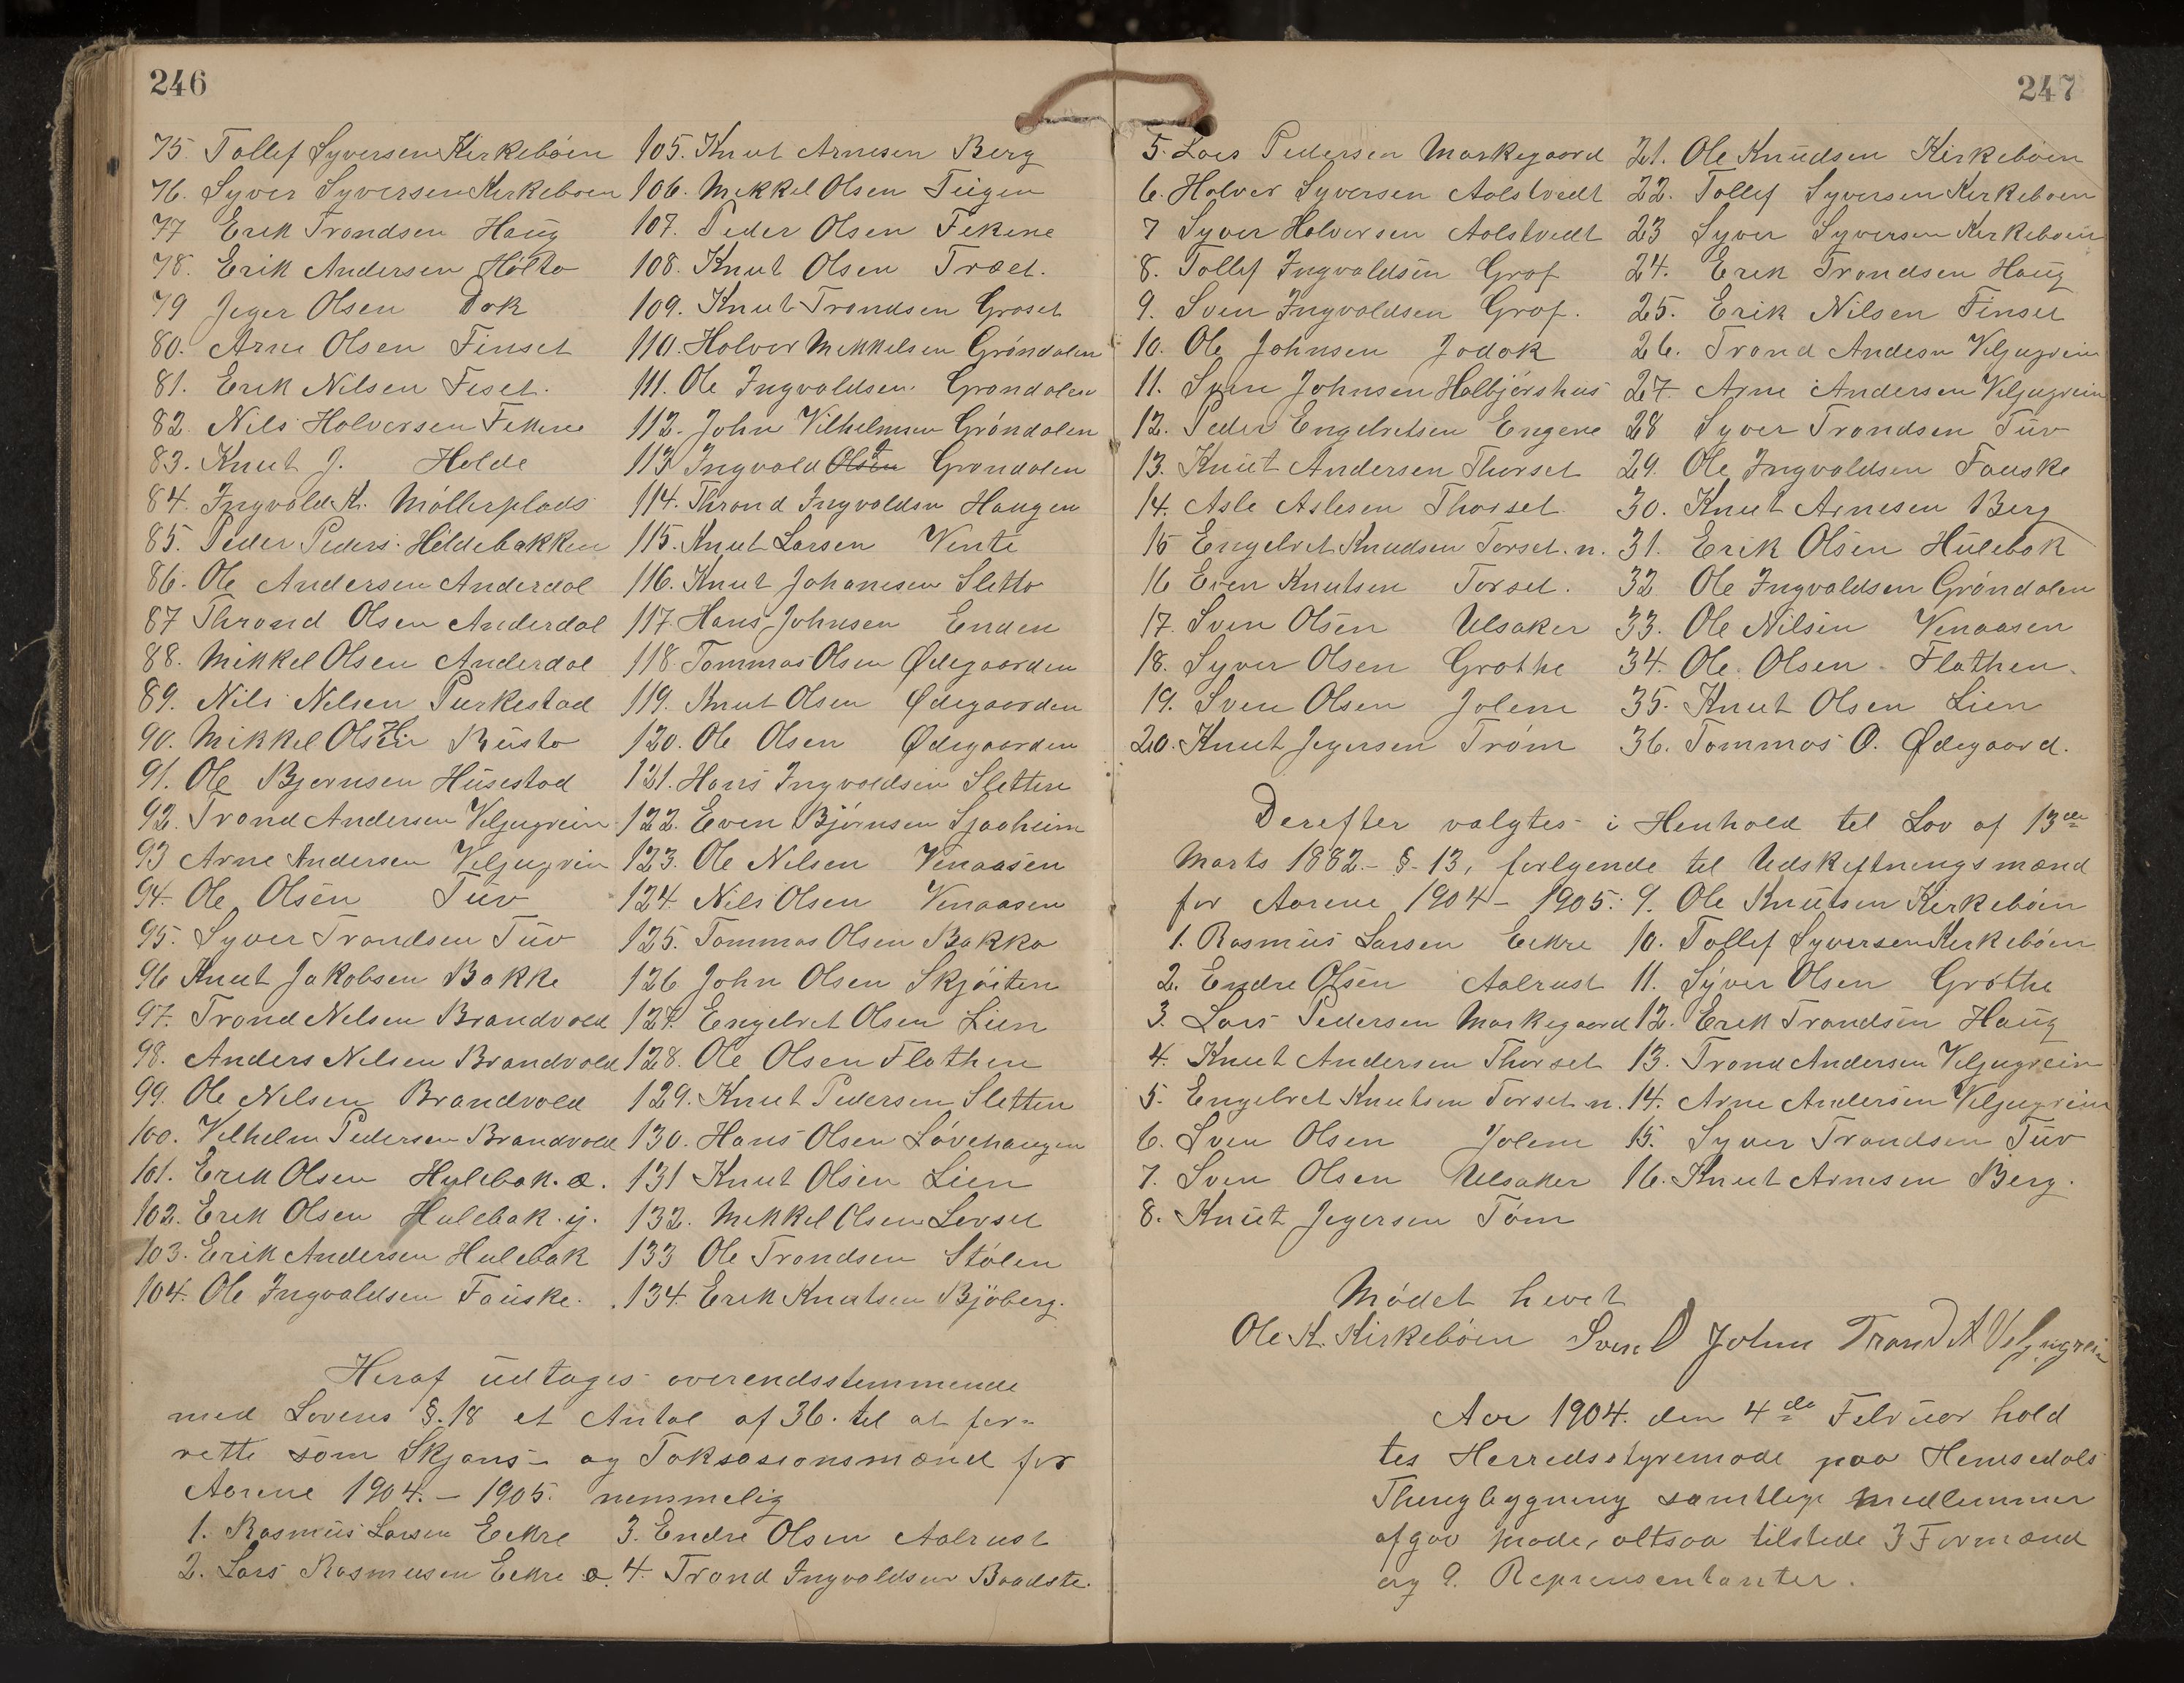 246
75. Tollef Syversen Kirkebøen
76. Syver Syversen Kirkeboen
77 Erik Trondsen Haug
78. Erik Andersen Holto
79 Jeger Olsen Dok
80. Arne Olsen Finset
81. Erik Nilsen Fiset.
82. Nils Holversen Fekene
83. Knut J. Helde
84. Ingvold K. Möllerplads
85. Peder Peders. Hildebakken
86. Ole Andersen Anderdal
87 Thrond Olsen Anderdal
88. Mikkel Olsen Anderdal
89. Nils Nilsen Purkestad
90. Mikkel Olsen Rusto
91. Ole Bjørnsen Husestad
92. Trond Andersen Veljugrein
93 Arne Andersen Veljugrein
94. Ole Olsen Tuv
95. Syver Trondsen Tuv
96 Knut Jakobsen Bakke
97. Trond Nelsen Brandvold
98. Anders Nelsen Brandvold
99. Ole Nelsen Brandvold
100. Velhelm Pedersen Brandvold
101. Erik Olsen Hulebak. æ.
102. Erik Olsen Hulebak. y.
103. Erik Andersen Hulebak
104. Ole Ingvaldsen Fauske.
105. Knut Arnesen Berg
106. Mekkel Olsen Tugen
107. Peder Olsen Fekene
108. Knut Olsen Træet.
109. Knut Trondsen Groset
110. Holver Mekkelsen Gröndalen
111. Ole Ingvoldsen Grondalen
112. John Vilhelmsen Gröndalen
113 Ingvold Olsen Grondalen
114. Thrond Ingvoldsn Haugen
115. Knut Larsen Vente
116. Knut Johanesen Sletto
117. Hans Johnsen Enden
118. Tommas Olsen Ødegaarden
119. Knut Olsen Ødegaarden
120. Ole Olsen Ødegaarden
121. Hans Ingvoldsen Sletten
122. Even Björnsen Sjaaheim
123. Ole Nelsen Venaasen
124. Nils Olsen Venaasen
125. Tommas Olsen Bakko
126 John Olsen Skjöiten
127. Engebret Olsen Lien
128. Ole Olsen Flathen
129. Knut Pedersen Sletten
130. Hans Olsen Lövehaugen
131 Knut Olsen Lien
132. Mekkel Olsen Levset
133 Ole Trondsen Stölen
134. Erik Knutsen Bjöberg.
Heraf udtages overendsstemmende
med Lovens §.18 et Antal af 36. til at for-
rette som Skjøns- og Taksasionsmænd for
Aarene 1904. - 1905. nemmelig
1. Rasmus Larsen Eekre
2. Lars Rasmusen Eekre æ.
3. Endre Olsen Aalrust
4. Trond Ingvoldsen Baadste.
247
5. Lars Pedersen Markegaard
6. Holver Syversen Aalstvedt
7 Syver Holversen Aalstvedt
8. Tollef Ingvaldsen Grøf
9. Sven Ingvoldsen Grøf.
10. Ole Johnsen Jodok
11. Sven Johnsen Holbjørshus
12. Peder Engebretsen Engene
13. Knut Andersen Thorset
14. Asle Aslesen Thorset
15 Engebret Knudsen Torset. n.
16 Even Knutsen Torset.
17. Sven Olsen Ulsaker
18. Syver Olsen Grøthe
19. Sven Olsen Jolem
20. Knut Jegersen Tröm
21. Ole Knudsen Kirkeboen
22. Tollef Syversen Kirkeboen
23 Syver Syversen Kirkeboen
24. Erik Trondsen Haug
25. Erik Nilsen Finset
26. Trond Andesn Veljugrein
27. Arne Andersen Veljugrein
28 Syver Trondsen Tuv
29. Ole Ingvoldsen Fauske
30. Knut Arnesen Berg
31. Erik Olsen Hulebak
32 Ole Ingvaldsen Gröndalen
33. Ole Nilsen Venaasen
34. Ole Olsen Flathen.
35. Knut Olsen Lien
36. Tommas O. Ødegaard.
Derefter valgtes i Henhold til Lov af 13de
Marts 1882. §. 13, følgende til Udskiftningsmænd
for Aarene 1904 - 1905:
1. Rasmus Larsen Eekre
2. Endre Olsen Aalrust
3. Lars Pedersen Markegaard
4. Knut Andersen Thorset
5. Engebret Knutsen Torset n.
6. Sven Olsen Jolem
7. Sven Olsen Ulsaker
8. Knut Jegersen Töm
9. Ole Knutsen Kirkeböen
10. Tollef Syversen Kirkeböen
11. Syver Olsen Grøthe
12. Erik Trondsen Haug
13. Trond Andersen Veljugrein
14. Arne Andersen Veljugrein
15. Syver Trondsen Tuv
16. Knut Arnesen Berg.
Mödet hevet
Ole K. Kirkeböen Sven O Jolem Trond A Veljugrein
Aar 1904. den 4de Februar hold
tes Herredsstyremøde paa Hemsedals
Thingbygning samtlige Medlemmer
afgav møde, altsaa tilstede 3 Formænd
og 9. Reprensentanter.